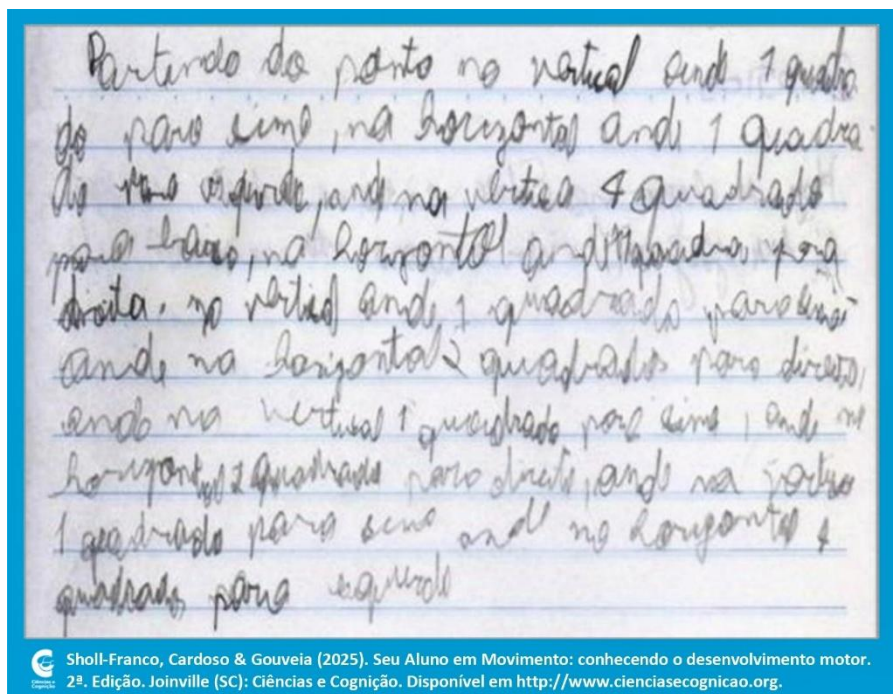 Partendo do ponto no vertical ande 1 quadra
do para sima, na horizontal ande 1 quadra
do para esquerda, ande na vertica 4 quadrado
para baixo, na horizontal ande quadra, para
direita. no vertical ande 1 quadrado para
ande na horizontal 2 quadrados para direita,
ande na vertical 1 quadrado para sima, ande na
horizontal 2 quadrado para direita, ande na vertica
1 quadrado para sima ande no horizontal 4
quadrados para esquerda
Ciências e Cognição
Sholl-Franco, Cardoso & Gouveia (2025). Seu Aluno em Movimento: conhecendo o desenvolvimento motor.
2ª. Edição. Joinville (SC): Ciências e Cognição. Disponível em http://www.cienciasecognicao.org.